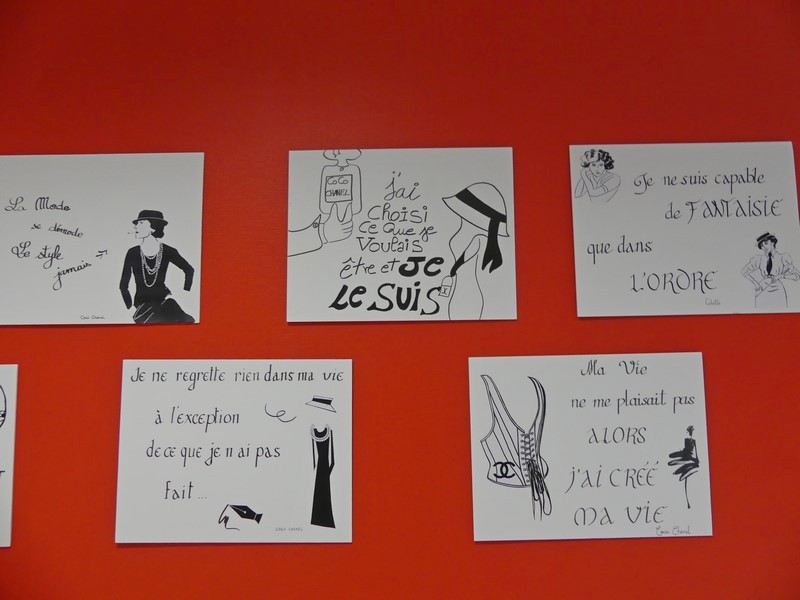 La Mode
se démode
Le style
jamais
Coco Chanel
CoCo
CHANEL
j'ai
CHOiSi
Ce que je
Voulais
être et JE
LE SUiS
Je ne suis capable
de FANTAISIE
que dans
L'ORDRE
Colette
Je ne regrette rien dans ma vie
à l'exception
de ce que je n ai pas
fait...
COCO CHANEL
Ma Vie
ne me plaisait pas
ALORS
j'ai CRÉÉ
MA VIE
Coco Chanel